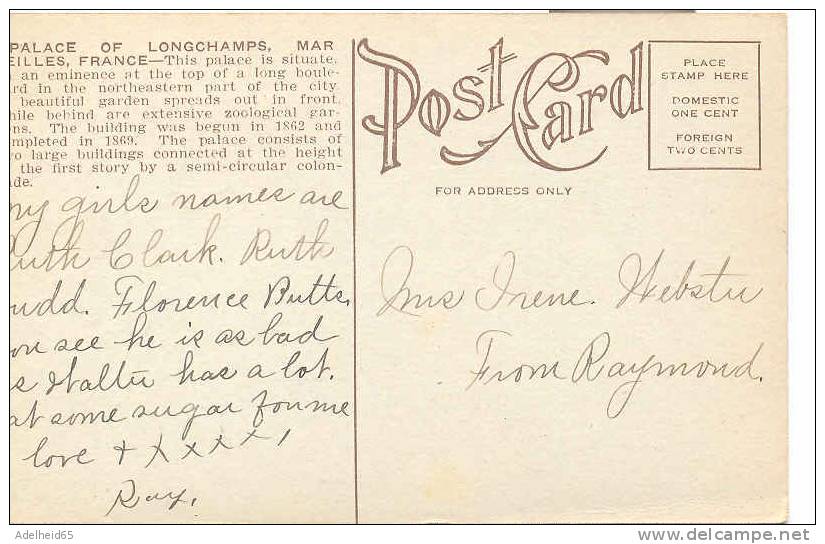 PALACE OF LONGCHAMPS, MAR
EILLES, FRANCE—This palace is situate.
an eminence at the top of a long boule-
rd in the northeastern part of the city.
beautiful garden spreads out in front,
hile behind are extensive zoological gar-
ns. The building was begun in 1862 and
mpleted in 1869. The palace consists of
o large buildings connected at the height
the first story by a semi-circular colon-
de.
my girls names are
uth Clark. Ruth
udd. Florence Butts.
ou see he is as bad
s Walter has a lot.
at some sugar for me
love + x x x x x,
Ray.
Post Card
FOR ADDRESS ONLY
PLACE
STAMP HERE
DOMESTIC
ONE CENT
FOREIGN
TWO CENTS
Irene. Webster
From Raymond.
Adelheid65
www.delcampe.net